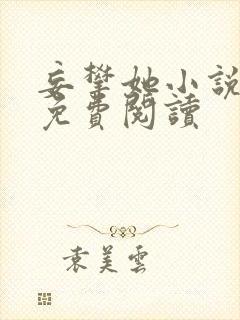 妄攀她小說
免費閱讀
袁美雲